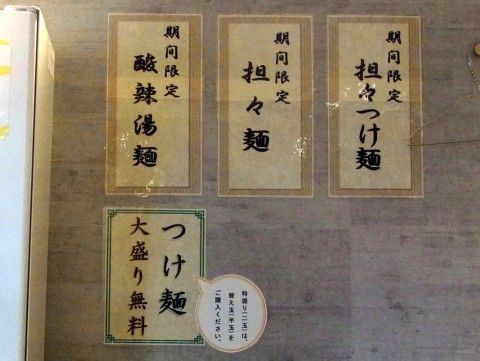 期間限定
担々つけ麺
期間限定
担々麺
期間限定
酸辣湯麺
つけ麺
大盛り無料
特盛り(二玉)は、
替え玉(半玉)を
ご購入ください。